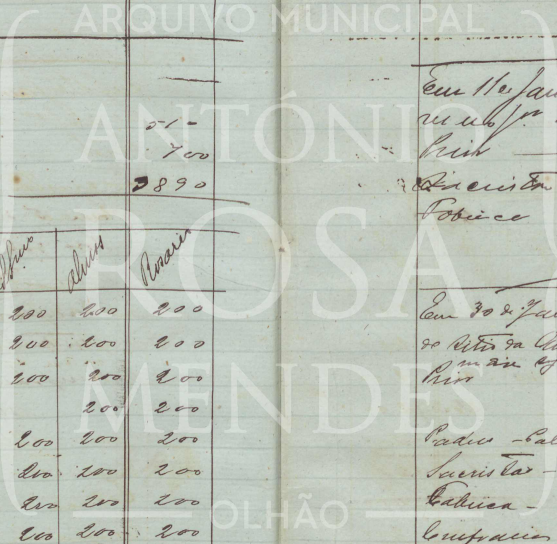 ARQUIVO MUNICIPAL
ANTÓNIO
ROSA
MENDES
OLHÃO
51-
700
890
Almas Rosario
200 200 200
200 200 200
200 200 200
200 200
200 200 200
200 200 200
200 200 200
200 200 200
Em 11 de Jan
Prior
Sacristão
Fabrica
Em 30 de Jan
do sitio da
Prior
Padre
Sacristão -
Fabrica -
Confrarias